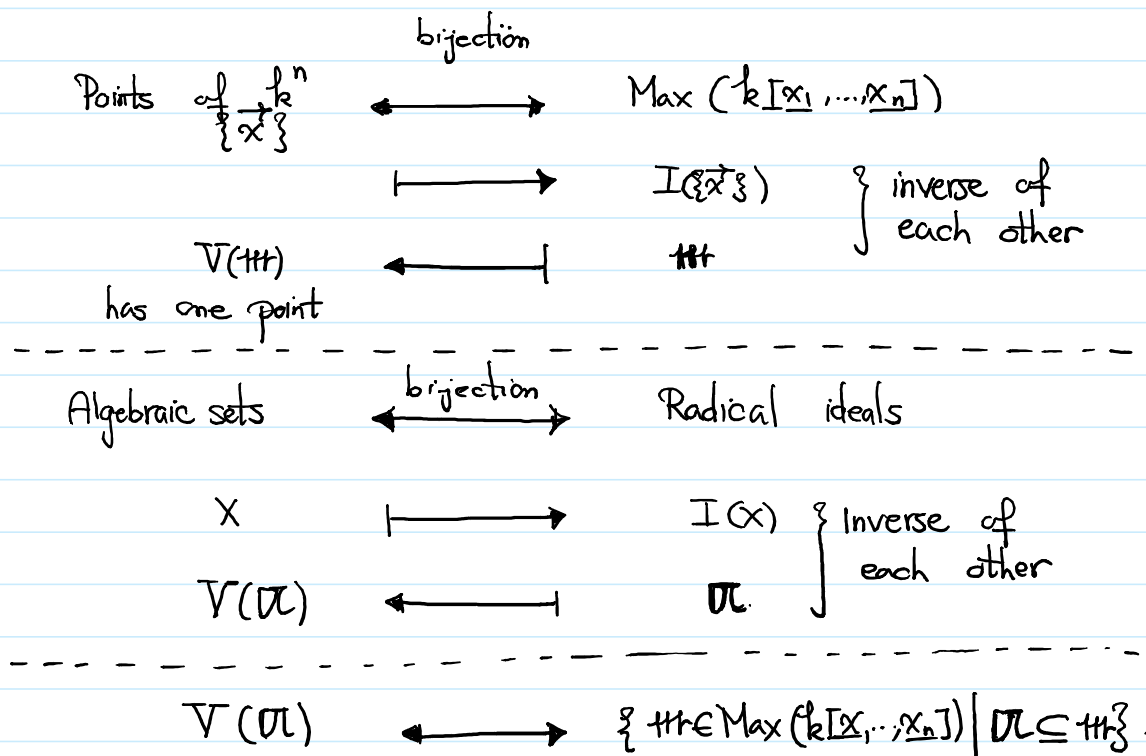 bijection
Points of k^n ⟷ Max (k[x_1,...,x_n])
{x⃗} ⟼ I({x⃗}) } inverse of
each other
V(𝔪) ⟻ 𝔪
has one point
bijection
Algebraic sets ⟷ Radical ideals
X ⟼ I(X) } Inverse of
each other
V(𝔞) ⟻ 𝔞.
V(𝔞) ⟷ { 𝔪 ∈ Max (k[x_1,..,x_n]) | 𝔞 ⊆ 𝔪 }